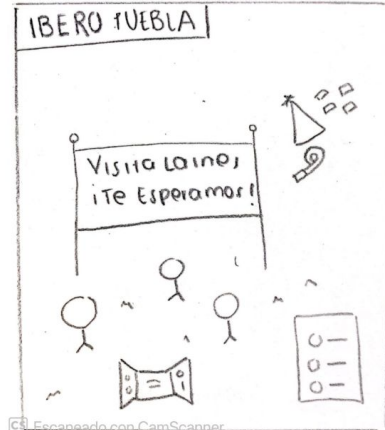 IBERO PUEBLA
Visita Laines
¡Te Esperamos!
CS Escaneado con CamScanner